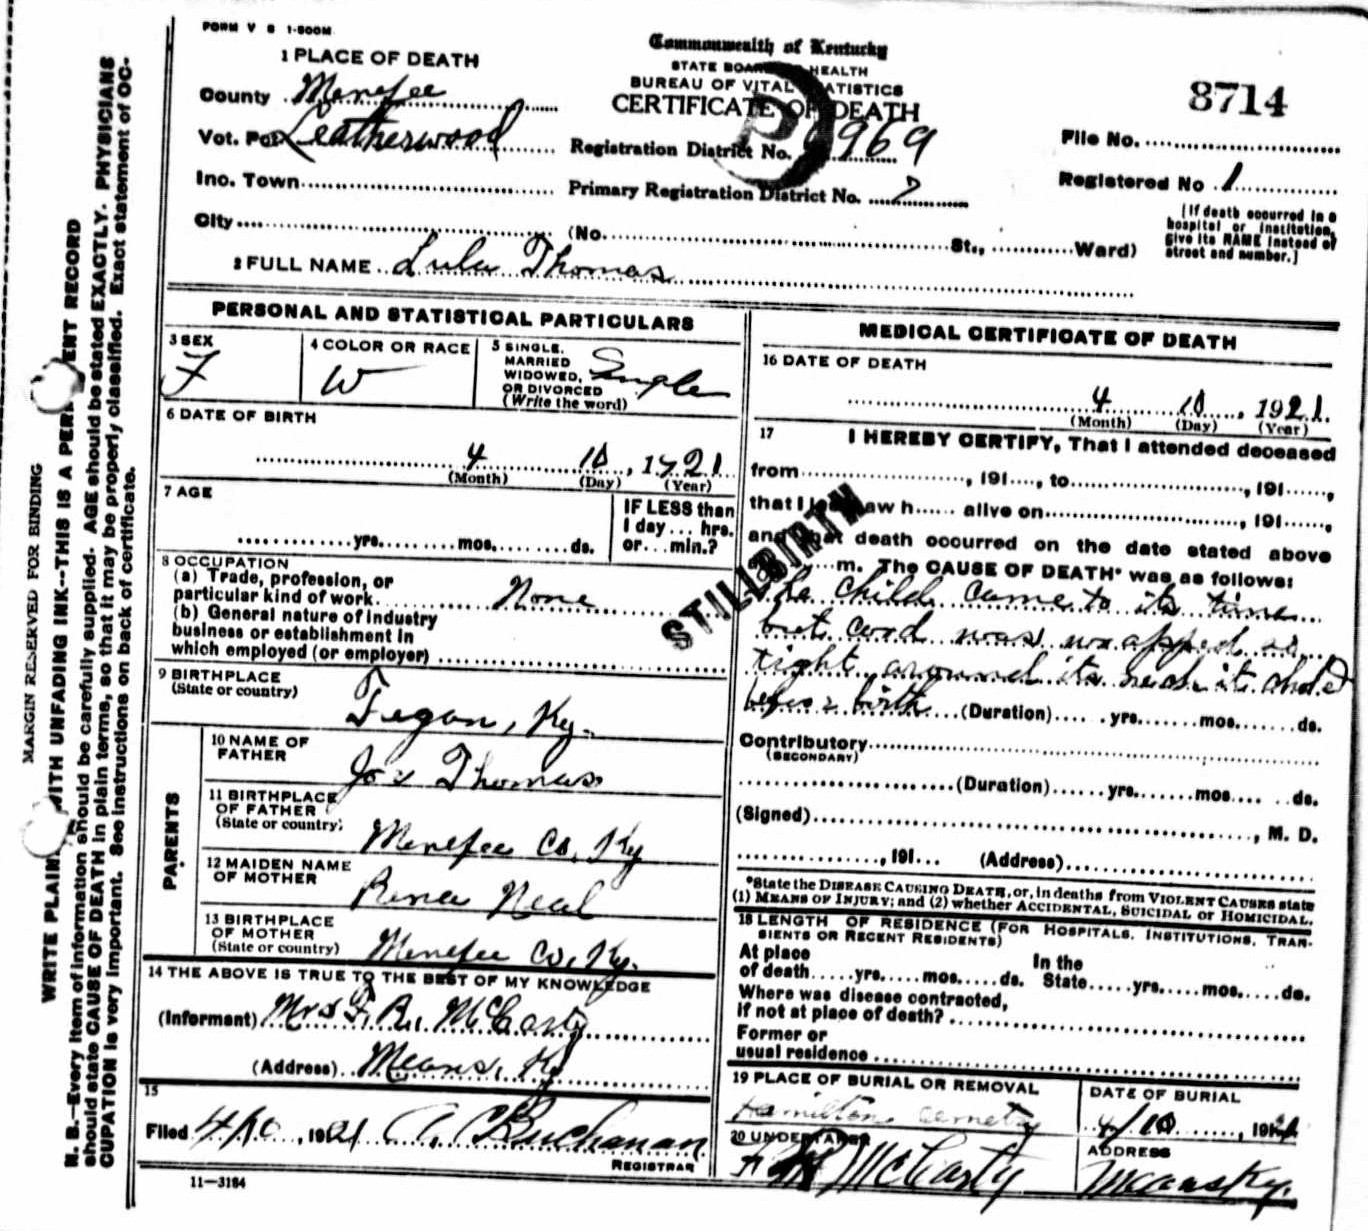 FORM V S 1-500M
Commonwealth of Kentucky
STATE BOARD HEALTH
BUREAU OF VITAL STATISTICS
CERTIFICATE OF DEATH
8714
1 PLACE OF DEATH
County Menefee
Vot. Pct Leatherwood
Inc. Town
City (No. St., Ward)
Registration District No. 969
Primary Registration District No.
File No.
Registered No 1
[If death occurred in a
hospital or institution,
give its NAME instead of
street and number.]
2 FULL NAME Lula Thomas
PERSONAL AND STATISTICAL PARTICULARS
3 SEX
F
4 COLOR OR RACE
W
5 SINGLE,
MARRIED
WIDOWED,
OR DIVORCED
(Write the word)
Single
6 DATE OF BIRTH
4 10, 1921
(Month) (Day) (Year)
7 AGE
yrs. mos. ds.
IF LESS than
1 day ... hrs.
or ... min.?
8 OCCUPATION
(a) Trade, profession, or
particular kind of work None
(b) General nature of industry
business or establishment in
which employed (or employer)
9 BIRTHPLACE
(State or country)
Ky.
10 NAME OF
FATHER
Thomas
11 BIRTHPLACE
OF FATHER
(State or country)
Menefee Co, Ky
12 MAIDEN NAME
OF MOTHER
Neal
13 BIRTHPLACE
OF MOTHER
(State or country)
Menefee Co, Ky.
14 THE ABOVE IS TRUE TO THE BEST OF MY KNOWLEDGE
(Informant) Mrs F. R. McCarty
(Address) Means, Ky
15
Filed 4/10, 1921 A C Buchanan
REGISTRAR
11-3184
MEDICAL CERTIFICATE OF DEATH
16 DATE OF DEATH
4 10, 1921
(Month) (Day) (Year)
17 I HEREBY CERTIFY, That I attended deceased
from , 191 , to , 191 ,
that I last saw h alive on , 191 ,
and that death occurred on the date stated above
m. The CAUSE OF DEATH* was as follows:
STILLBIRTH
The child came to its time
but cord was wrapped so
tight around its neck it choked
before birth (Duration) yrs. mos. ds.
Contributory
(SECONDARY)
(Duration) yrs. mos. ds.
(Signed) , M. D.
, 191 (Address)
*State the DISEASE CAUSING DEATH, or, in deaths from VIOLENT CAUSES state
(1) MEANS OF INJURY; and (2) whether ACCIDENTAL, SUICIDAL or HOMICIDAL.
18 LENGTH OF RESIDENCE (FOR HOSPITALS, INSTITUTIONS, TRAN-
SIENTS OR RECENT RESIDENTS)
At place
of death yrs. mos. ds.
In the
State yrs. mos. ds.
Where was disease contracted,
if not at place of death?
Former or
usual residence
19 PLACE OF BURIAL OR REMOVAL
Hamilton Cemetery
DATE OF BURIAL
4/10, 1921
20 UNDERTAKER
McCarty
ADDRESS
Means Ky.
MARGIN RESERVED FOR BINDING
WRITE PLAINLY WITH UNFADING INK--THIS IS A PERMANENT RECORD
N. B.--Every item of information should be carefully supplied. AGE should be stated EXACTLY. PHYSICIANS
should state CAUSE OF DEATH in plain terms, so that it may be properly classified. Exact statement of OC-
CUPATION is very important. See instructions on back of certificate.
PARENTS